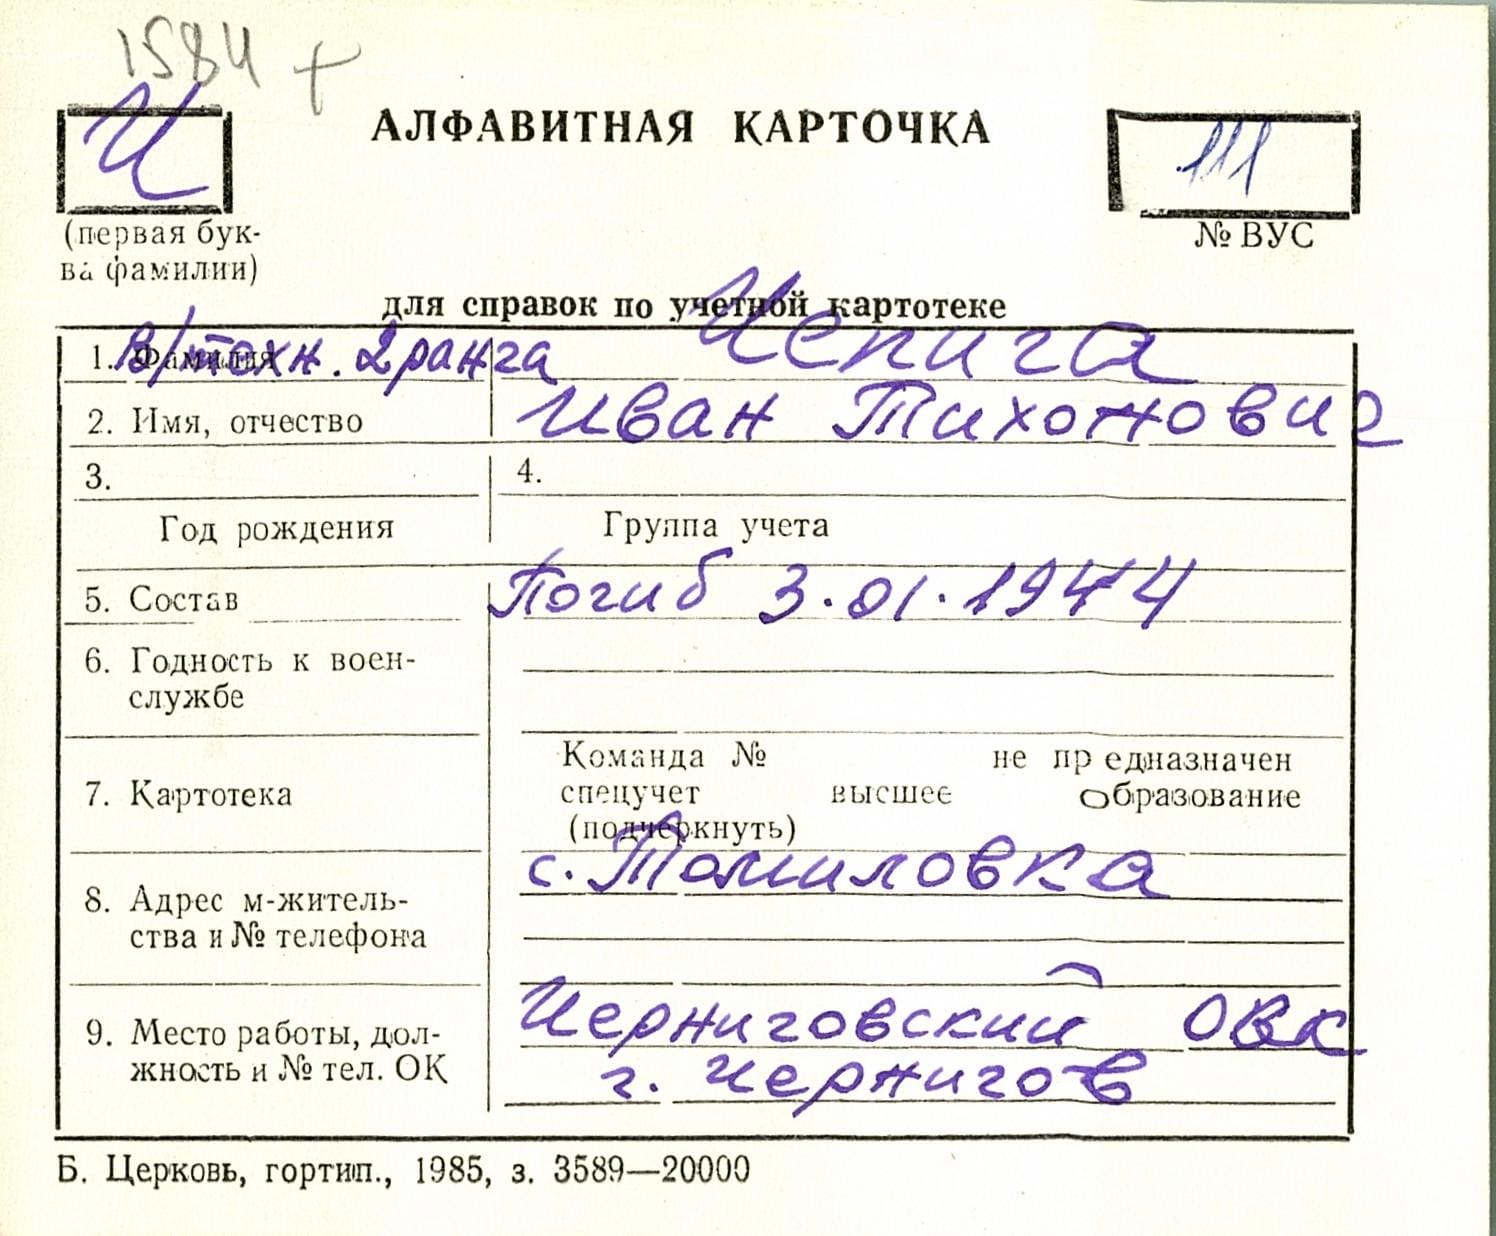 1584 +
Ч
АЛФАВИТНАЯ КАРТОЧКА
111
(первая бук-
ва фамилии)
№ ВУС
для справок по учетной картотеке
1. Фамилия В/техн. 2 ранга Чепига
2. Имя, отчество Иван Тихонович
3.
4.
Год рождения
Группа учета
5. Состав Погиб 3.01.1944
6. Годность к воен-
службе
7. Картотека
Команда № не предназначен
спецучет высшее образование
(подчеркнуть)
с. Томиловка
8. Адрес м-житель-
ства и № телефона
9. Место работы, дол-
жность и № тел. ОК
Черниговский ОВК
г. Чернигов
Б. Церковь, гортип., 1985, з. 3589—20000